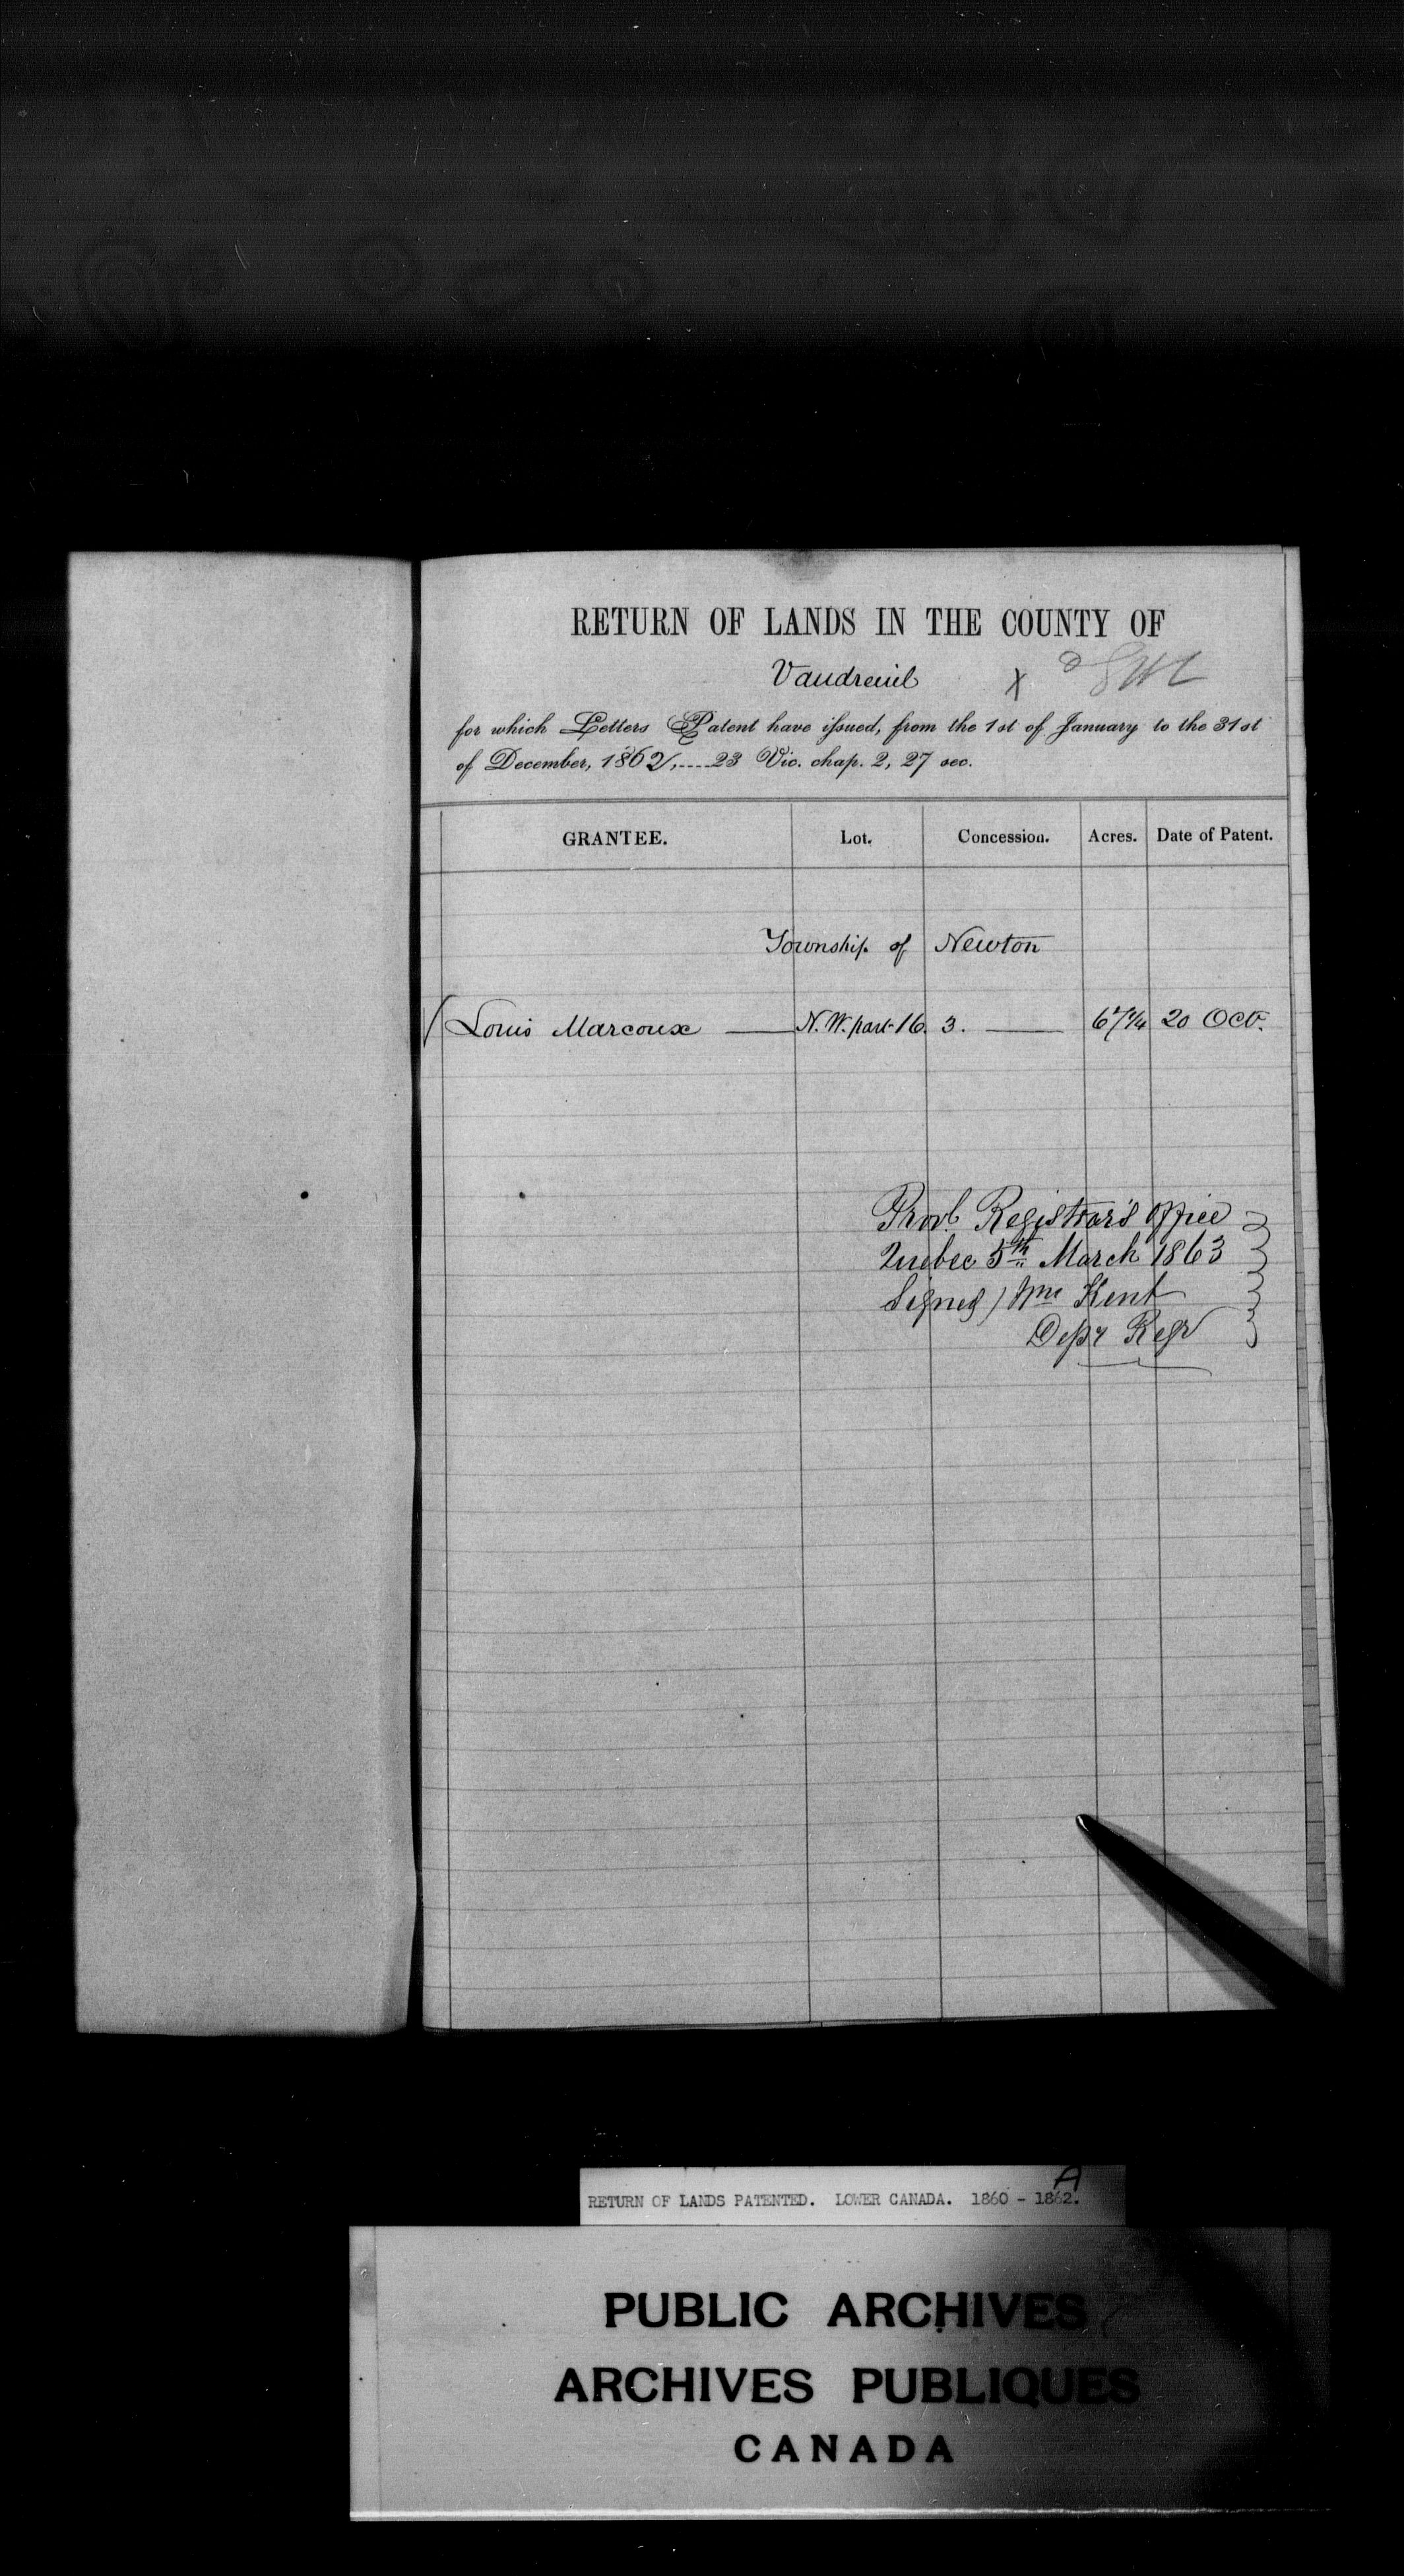 RETURN OF LANDS IN THE COUNTY OF
Vaudreuil X
for which Letters Patent have issued, from the 1st of January to the 31st
of December, 1862,....23 Vic. chap. 2, 27 sec.
GRANTEE. Lot. Concession. Acres. Date of Patent.
Township of Newton
Louis Marcoux N.W. part 16. 3. 20 Oct.
Provl. Registrar's Office
Quebec 5th March 1863
Signed / Wm Kent
Depy Regr
RETURN OF LANDS PATENTED. LOWER CANADA. 1860 - 1862.
A
PUBLIC ARCHIVES
ARCHIVES PUBLIQUES
CANADA